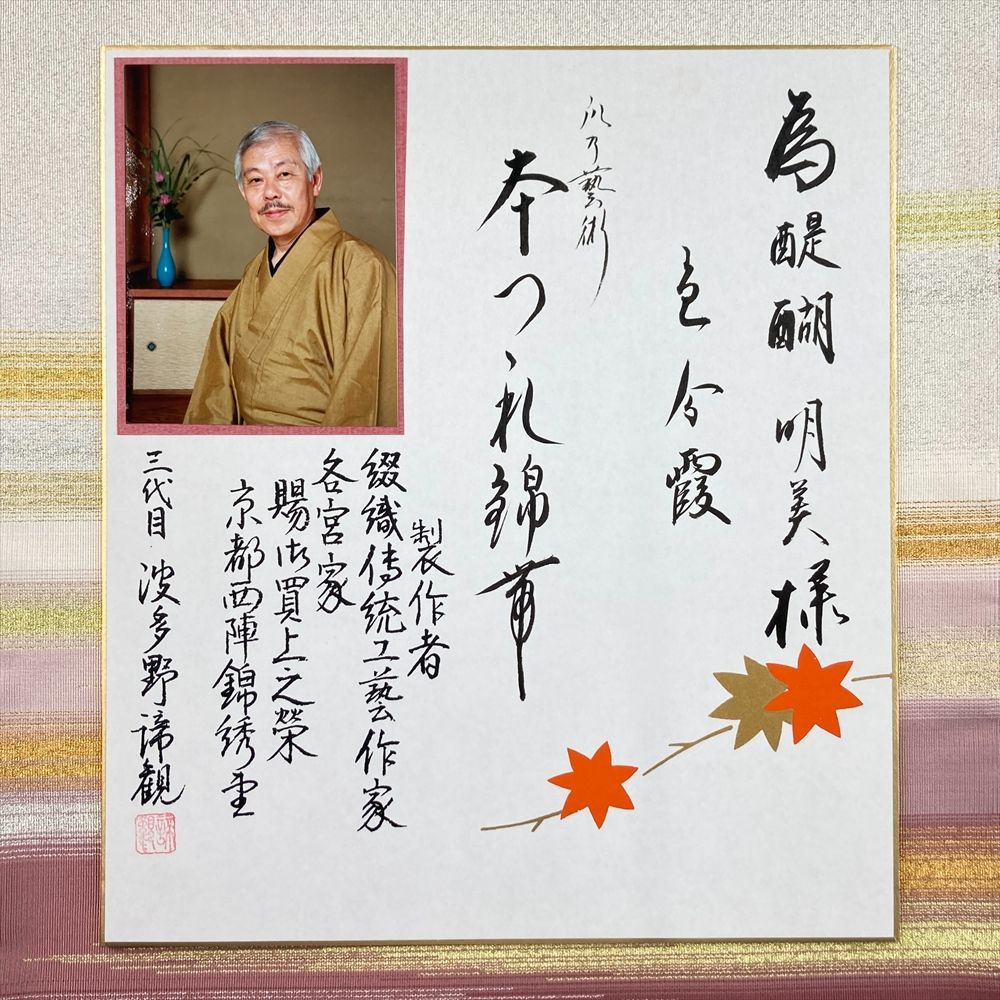 為 醍醐 明美 様
色分霞
爪乃藝術
本つゞれ錦帯
製作者
綴織傳統工藝作家
各宮家
賜御買上之榮
京都西陣錦綉堂
三代目 波多野諦観